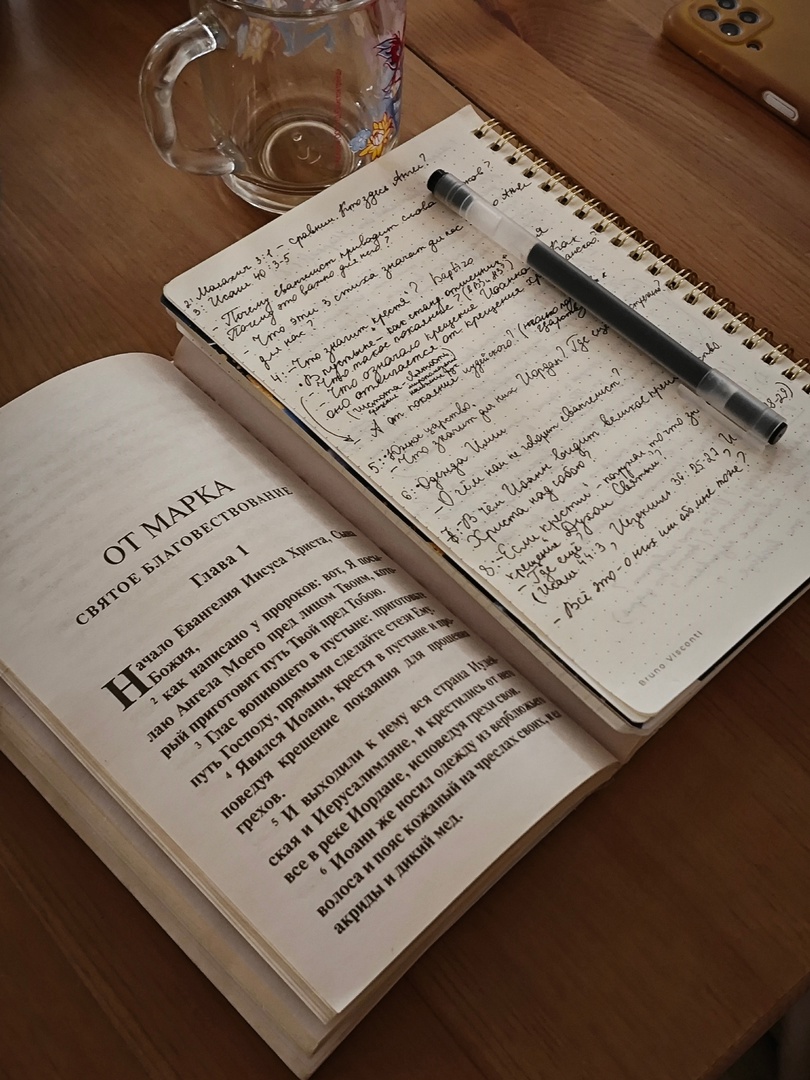 ОТ МАРКА
СВЯТОЕ БЛАГОВЕСТВОВАНИЕ
Глава 1
Начало Евангелия Иисуса Христа, Сына
Божия,
2 как написано у пророков: вот, Я посы-
лаю Ангела Моего пред лицом Твоим, кото-
рый приготовит путь Твой пред Тобою.
3 Глас вопиющего в пустыне: приготовьте
путь Господу, прямыми сделайте стези Ему.
4 Явился Иоанн, крестя в пустыне и про-
поведуя крещение покаяния для прощения
грехов.
5 И выходили к нему вся страна Иудей-
ская и Иерусалимляне, и крестились от него
все в реке Иордане, исповедуя грехи свои.
6 Иоанн же носил одежду из верблюжьего
волоса и пояс кожаный на чреслах своих, и ел
акриды и дикий мед.
2: Малахия 3:1 - сравним. Кто здесь Ангел?
3: Исаии 40:3-5
- Почему евангелист приводит слова
Почему это важно для него?
- Что эти 3 стиха значат для нас
для нас?
4: - Что значит "крестя"?
- В пустыне
- Что такое покаяние?
- Что означало крещение Иоанна
оно отличается от крещения
- А от покаяния иудейского?
5: Южное царство.
- Что значит для них Иордан? Где ещё
6: Одежда Илии
- О чём нам не говорит евангелист?
7: - В чём Иоанн видит великое
Христа над собою?
8: - Если "крестить" - то что
крещение Духом Святым?
- Где ещё?
(Исаии 44:3, Иезекииль 36:25-27
- Всё это - о них им обо мне тоже?
Bruno Visconti